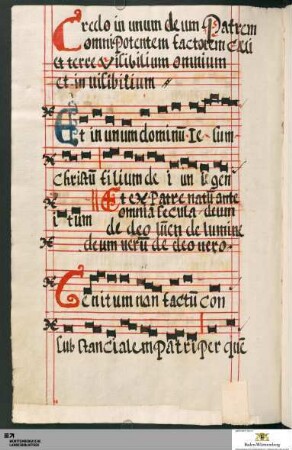 Credo in unum deum Patrem
omnipotentem factorem cæli
et terre visibilium omnium
et invisibilium
Et in unum dominū Ie- sum
Christū filium de i un i gen
i tum Et ex Patre natū ante
omnia secula deum
de deo lum̄ de lumine
deum verū de deo vero.
Genitum non factū con
substancialem patri per quē
Baden-Württemberg